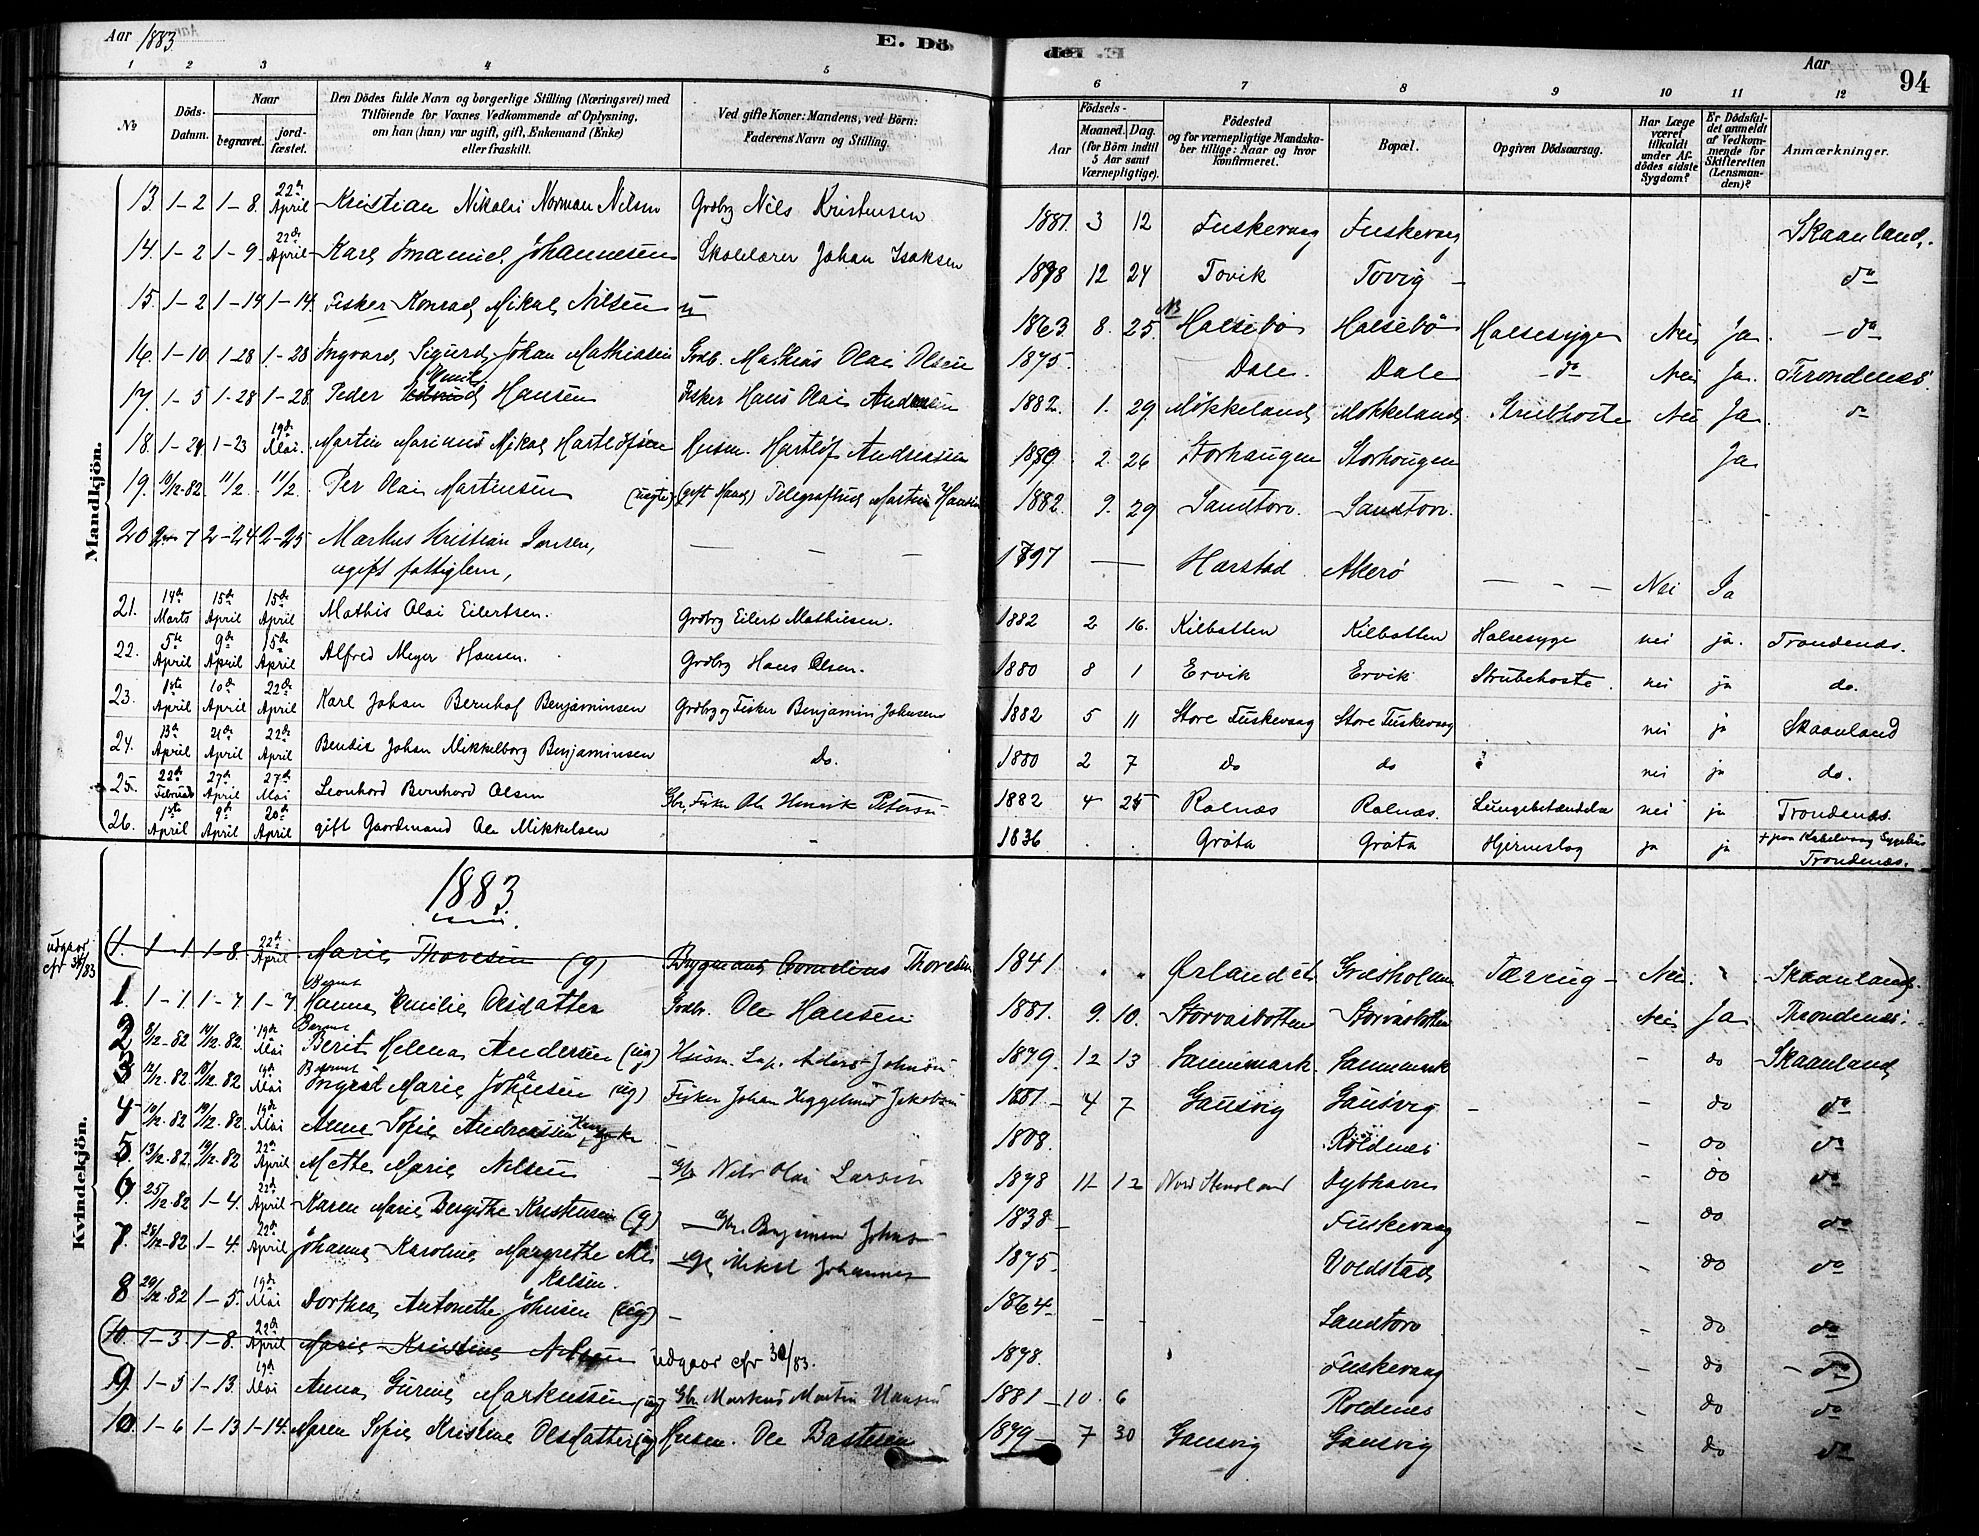 Aar 1883
E. Dö
den E.
Aar
94
1 2 3 4 5 6 7 8 9 10 11 12
No
Döds-Datum.
Naar
begravet.
jord-fæstet.
Den Dödes fulde Navn og borgerlige Stilling (Næringsvei) med
Tilföiende for Voxnes Vedkommende af Oplysning,
om han (hun) var ugift, gift, Enkemand (Enke)
eller fraskilt.
Ved gifte Koner: Mandens, ved Börn:
Faderens Navn og Stilling.
Födsels-
Aar
Maaned. Dag.
(for Börn indtil
5 Aar samt
Værnepligtige).
Födested
og for værnepligtige Mandska-
ber tillige: Naar og hvor
konfirmeret.
Bopæl.
Opgiven Dödsaarsag.
Har Læge
været
tilkaldt
under Af-
dödes sidste
Sygdom?
Er Dödsfal-
det anmeldt
af Vedkom-
mende for
Skifteretten
(Lensman-
den)?
Anmærkninger.
Mandkjön.
13. 1-2 1-8. 22de April Kristian Nikolai Norman Nilsen Grdbrg Nils Kristensen 1881. 3 12 Fuskevaag Fuskevaag Skaanland.
14. 1-2 1-9. 22de April Karl Imanuel Johannesen Skolelærer Johan Isaksen 1878 12 24 Tovik Tovig do
15. 1-2 1-14 1-14. Fisker Konrad Mikal Nilsen 1863 8. 25. Halsebö Halsebö Halsesyge Nei Ja. do
16. 1-10 1-28 1-28 Ingvard Sigurd Johan Mathissen Grdb. Mathias Olai Olsen 1875. Dale. Dale do Nei Ja. Trondenes.
17. 1-5 1-28 1-28. Peder Emil Hansen Fisker Hans Olai Andersen 1882. 1. 29 Mökkeland Mökkeland Strubhoste Nei Ja do
18. 1-24 1-23 19de Mai. Martin Marinus Mikal Hartlöfsen Husm. Hartlöf Andreassen 2. 26 Storhaugen Storhougen Ja
19. 10/12-82. 11/2. 11/2. Per Olai Martinsen (uægte) (gift Mand) Martin Hansen 1882. 9. 29 Sandtorv. Sandtorv.
20 7 2-24 2-25 Markus Kristian Jensen,
ugift fattiglem, 1797 Harstad Akerö Nei Ja
21. 14de Marts 15de April 15de April Mathis Olai Eilertsen. Grdbrg Eilert Mathisen. 1882 2 16. Kilbotten Kilbotten Halsesyge nei ja. Trondenæs.
22. 5te April 9de April 15de April Alfred Meyer Hansen. Grdbrg Hans Olsen. 1880 8 1 Ervik Ervik Strubehoste. nei ja do.
23. 1ste April 10de April 22de April Karl Johan Bernhof Benjaminsen Grdbrg og Fisker Benjamin Johnsen 1882 5 11 Store Fuskevaag Store Fuskevaag nei ja Skaanland
24. 13de April 21de April 22de April Bendix Johan Mikkelborg Benjaminsen do. 1880 2 7 do do nei ja do.
25. 22de Februar 27de April 27de Mai Leonhard Bernhard Olsen Gbr. Fisker Ole Henrik Petersen 1882 4 Rolnæs Rolnæs. Lungebetændelse nei ja Trondenæs.
26. 1ste April 9de April 20de April gift Gaardmand Ole Mikkelsen 1836 Gröta Gröta Hjerneslag ja ja + paa Kabelvaag Sygehus
Trondenæs.
1883
Kvindekjön.
udgaar
cfr 31/83
1. 1-1 1-8. 22de April Marie Thoresen (g) Bygmand Cornelius Thoresen 1841 Ørlandet Græsholmen Tæring Nei. Skaanland.
1. 1-1. 1-7 1-7 Barnet Hanna Emilie Olsdatter Grdbr. Ole Hansen 1881. 9. 10. Storvasbotten Storvasbotten Nei Ja Trondenes.
2 8/12-82 14/12-82. 19de Mai Barnet Berit Helena Andersen (ug) Husm. Lap. Anders Johnsen 1879. 12 13 Sannemark. Sannemark do Skaanland
3 12/12.82 18/12.82 19de Mai Barnet Ingrid Marie Johansen (ug) Fisker Johan Heggelund Jakobsen 1881 4 7 Gausvig Gausvig do do
4 10/12.82 19/12.82. 19de Mai Anne Sofie Andreassen 1808. Roldnes do do
5 13/12.82. 19/12.82 22de April Mette Marie Nilsen Gbr Nils Olai Larsen 1878 11 12 do do
6. 25/12.82 1-4. 22de April Karen Marie Bergithe Kristensen (g) Gbr. Benjamin Johnsen 1838 Fuskevaag do do
7. 25/12-82 1-4. 22de April Johanna Karoline Margrethe Mi-
kelsen. Mikel Johannes 1875. Voldstad do do
8 29/12.82 1-5. 19de Mai Dorthea Antonette Johnsen (ug) 1864 Sandtorv do do
10. 1-3. 1-8. 22de April Marie Kristine Nilsen udgaar cfr 30/83. 1878. Fuskevaag do do
9 1-5 1-13. 19de Mai Anna Gurine Markussen (ug) Gbr. Markus Martin Hansen 1881 10. 6 Roldnes do do
10. 1-6 1-13 1-14. Maren Sofie Kristine Olsdatter (ug) Husm. Ole Bastesen 1879 7 30 Gausvig Gausvig do do